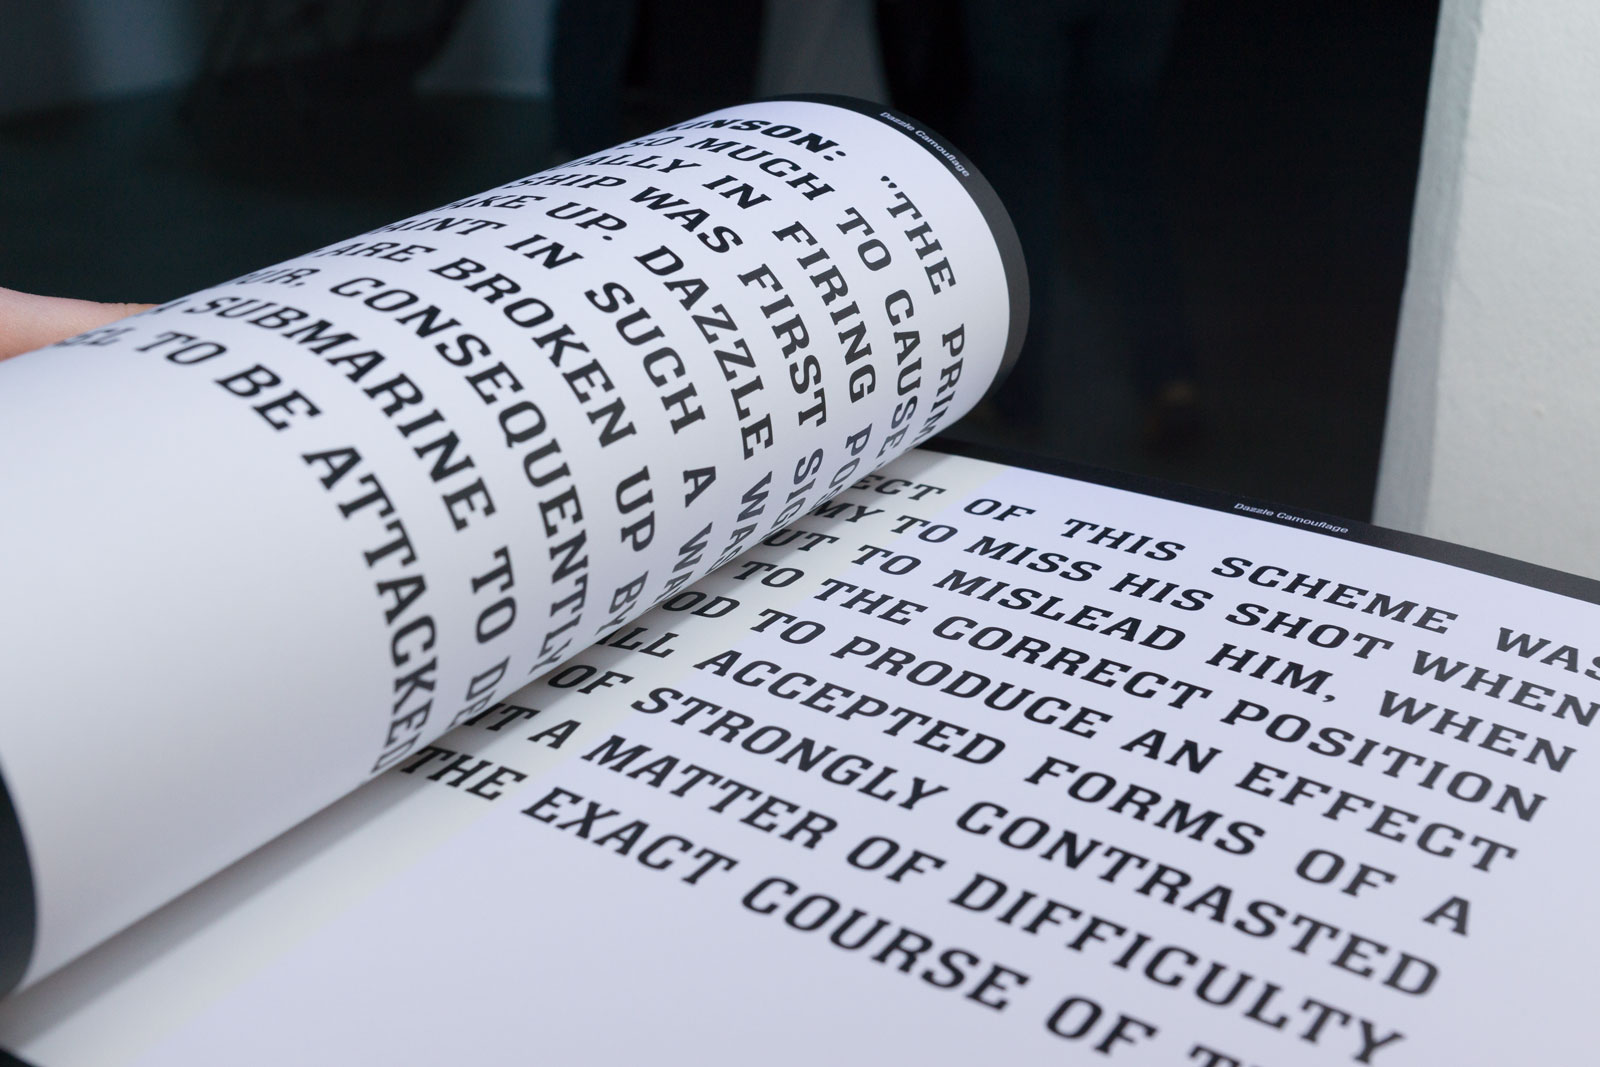 Dazzle Camouflage
"THE
SO MUCH TO CAUSE
IN FIRING
SHIP WAS FIRST
UP. DAZZLE WAS
IN SUCH A
ARE BROKEN UP BY
CONSEQUENTLY
A SUBMARINE TO
TO BE ATTACKED
Dazzle Camouflage
OF THIS SCHEME WAS
TO MISS HIS SHOT WHEN
TO MISLEAD HIM, WHEN
TO THE CORRECT POSITION
TO PRODUCE AN EFFECT
ALL ACCEPTED FORMS OF A
OF STRONGLY CONTRASTED
A MATTER OF DIFFICULTY
THE EXACT COURSE OF